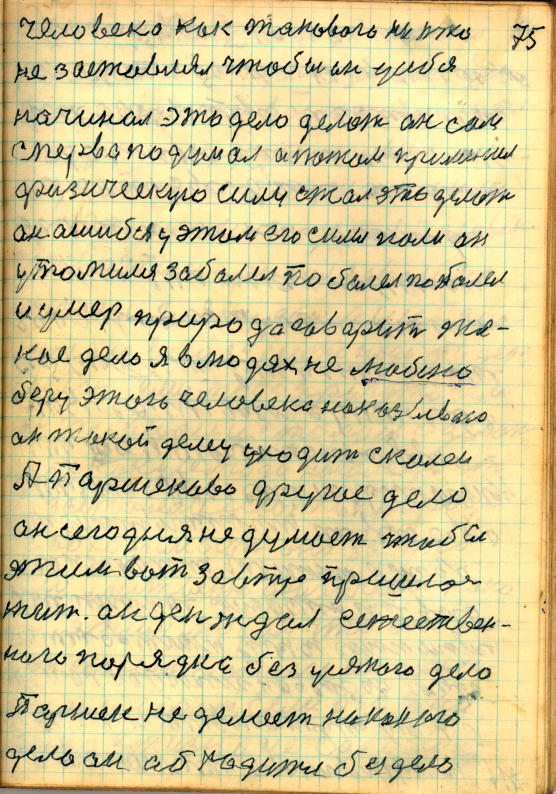 75
человека как таковога ни хто
не заставлял чтобы он уибя
начинал это дело делат он сам
сперва подумал а потом применил
физическую силу стал это делат
он ашибся у этом его сили пали он
утомился забалел по балел побалел
и умер природа говарит та-
кое дело я в людях не люблю
беру этого человека наказываю
он такой делец уходит с колеи
А Паршеково другое дело
он сегодня не думает чтобы
этим вот завтре пришлос
жит. он ден ждал естествен-
ного порядка без усякого дело
Паршек не делает накакого
дело он аб ходится без дело